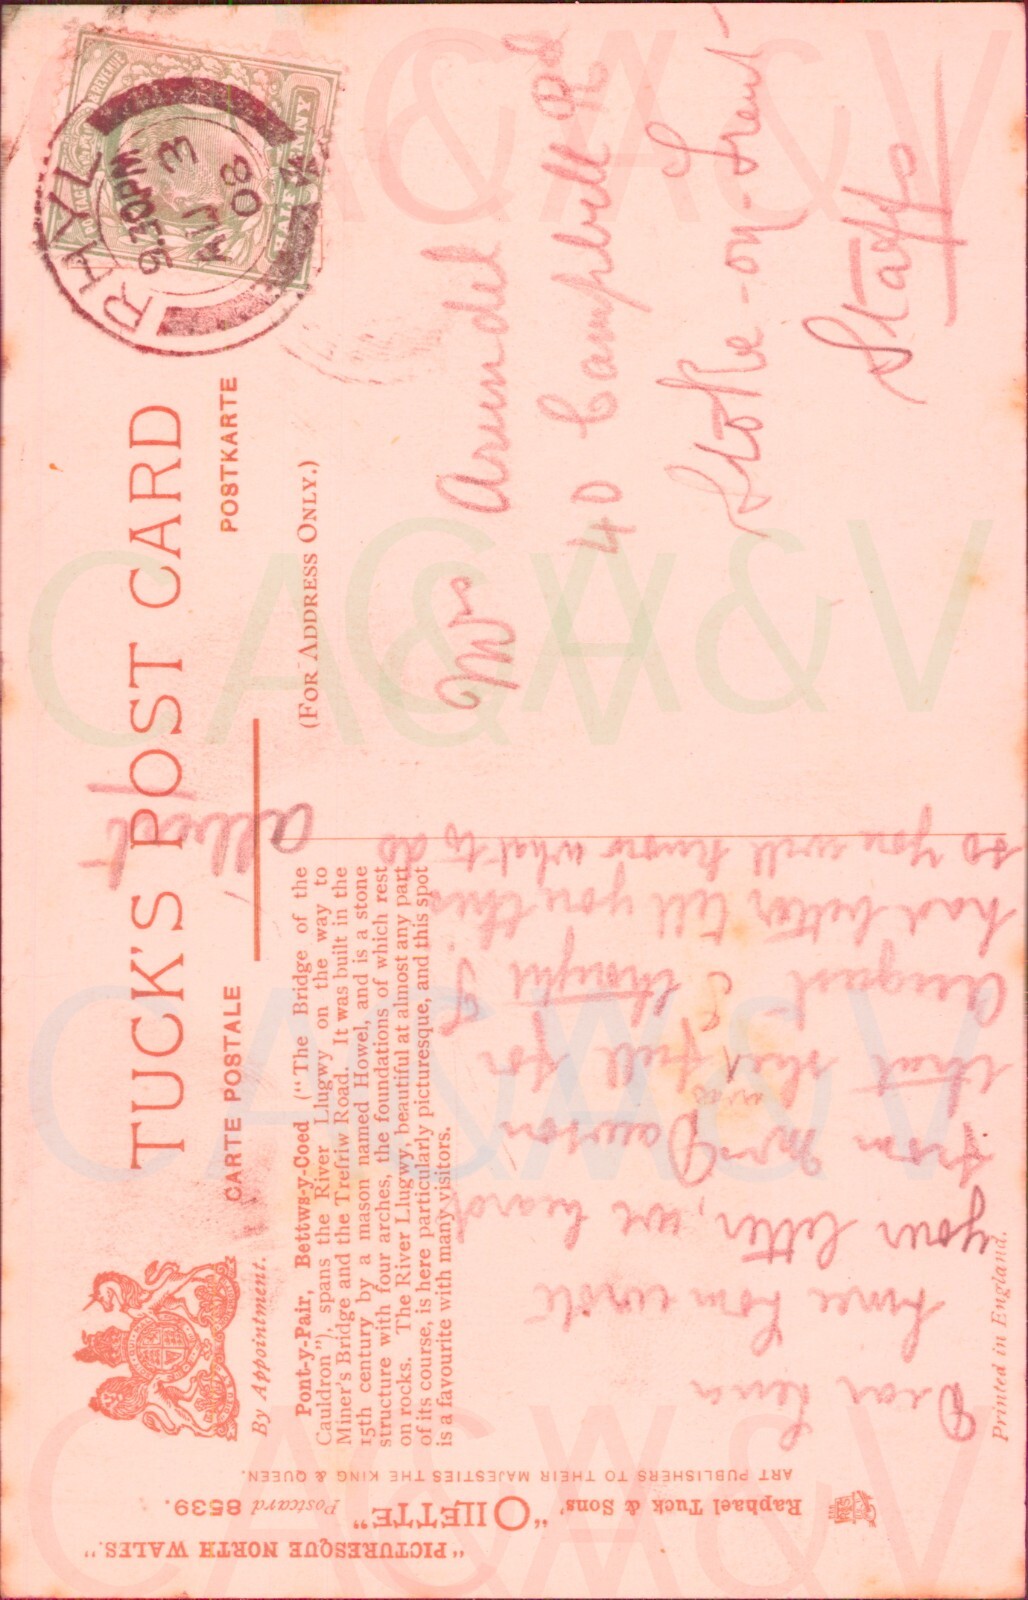 TUCK'S POST CARD
CARTE POSTALE
POSTKARTE
(FOR ADDRESS ONLY.)
By Appointment.
RHYL
9.30PM
AU 3
08
POSTAGE & REVENUE
HALF PENNY
Mrs Arundel
40 Campbell Rd
Stoke-on-Trent
Staffs
Pont-y-Pair, Bettws-y-Coed ("The Bridge of the
Cauldron"), spans the River Llugwy on the way to
Miner's Bridge and the Trefriw Road. It was built in the
15th century by a mason named Howel, and is a stone
structure with four arches, the foundations of which rest
on rocks. The River Llugwy, beautiful at almost any part
of its course, is here particularly picturesque, and this spot
is a favourite with many visitors.
"PICTURESQUE NORTH WALES."
Raphael Tuck & Sons' "OILETTE" Postcard 8539.
ART PUBLISHERS TO THEIR MAJESTIES THE KING & QUEEN.
Dear Lena
since Tom wrote
your letter, we heard
from Mrs Dawson
that she was full for
August I thought I
had better tell you this
so you will know what to do
Printed in England.
CA&V
CA&V
CA&V
CA&V
CA&V
CA&V
CA&V
CA&V